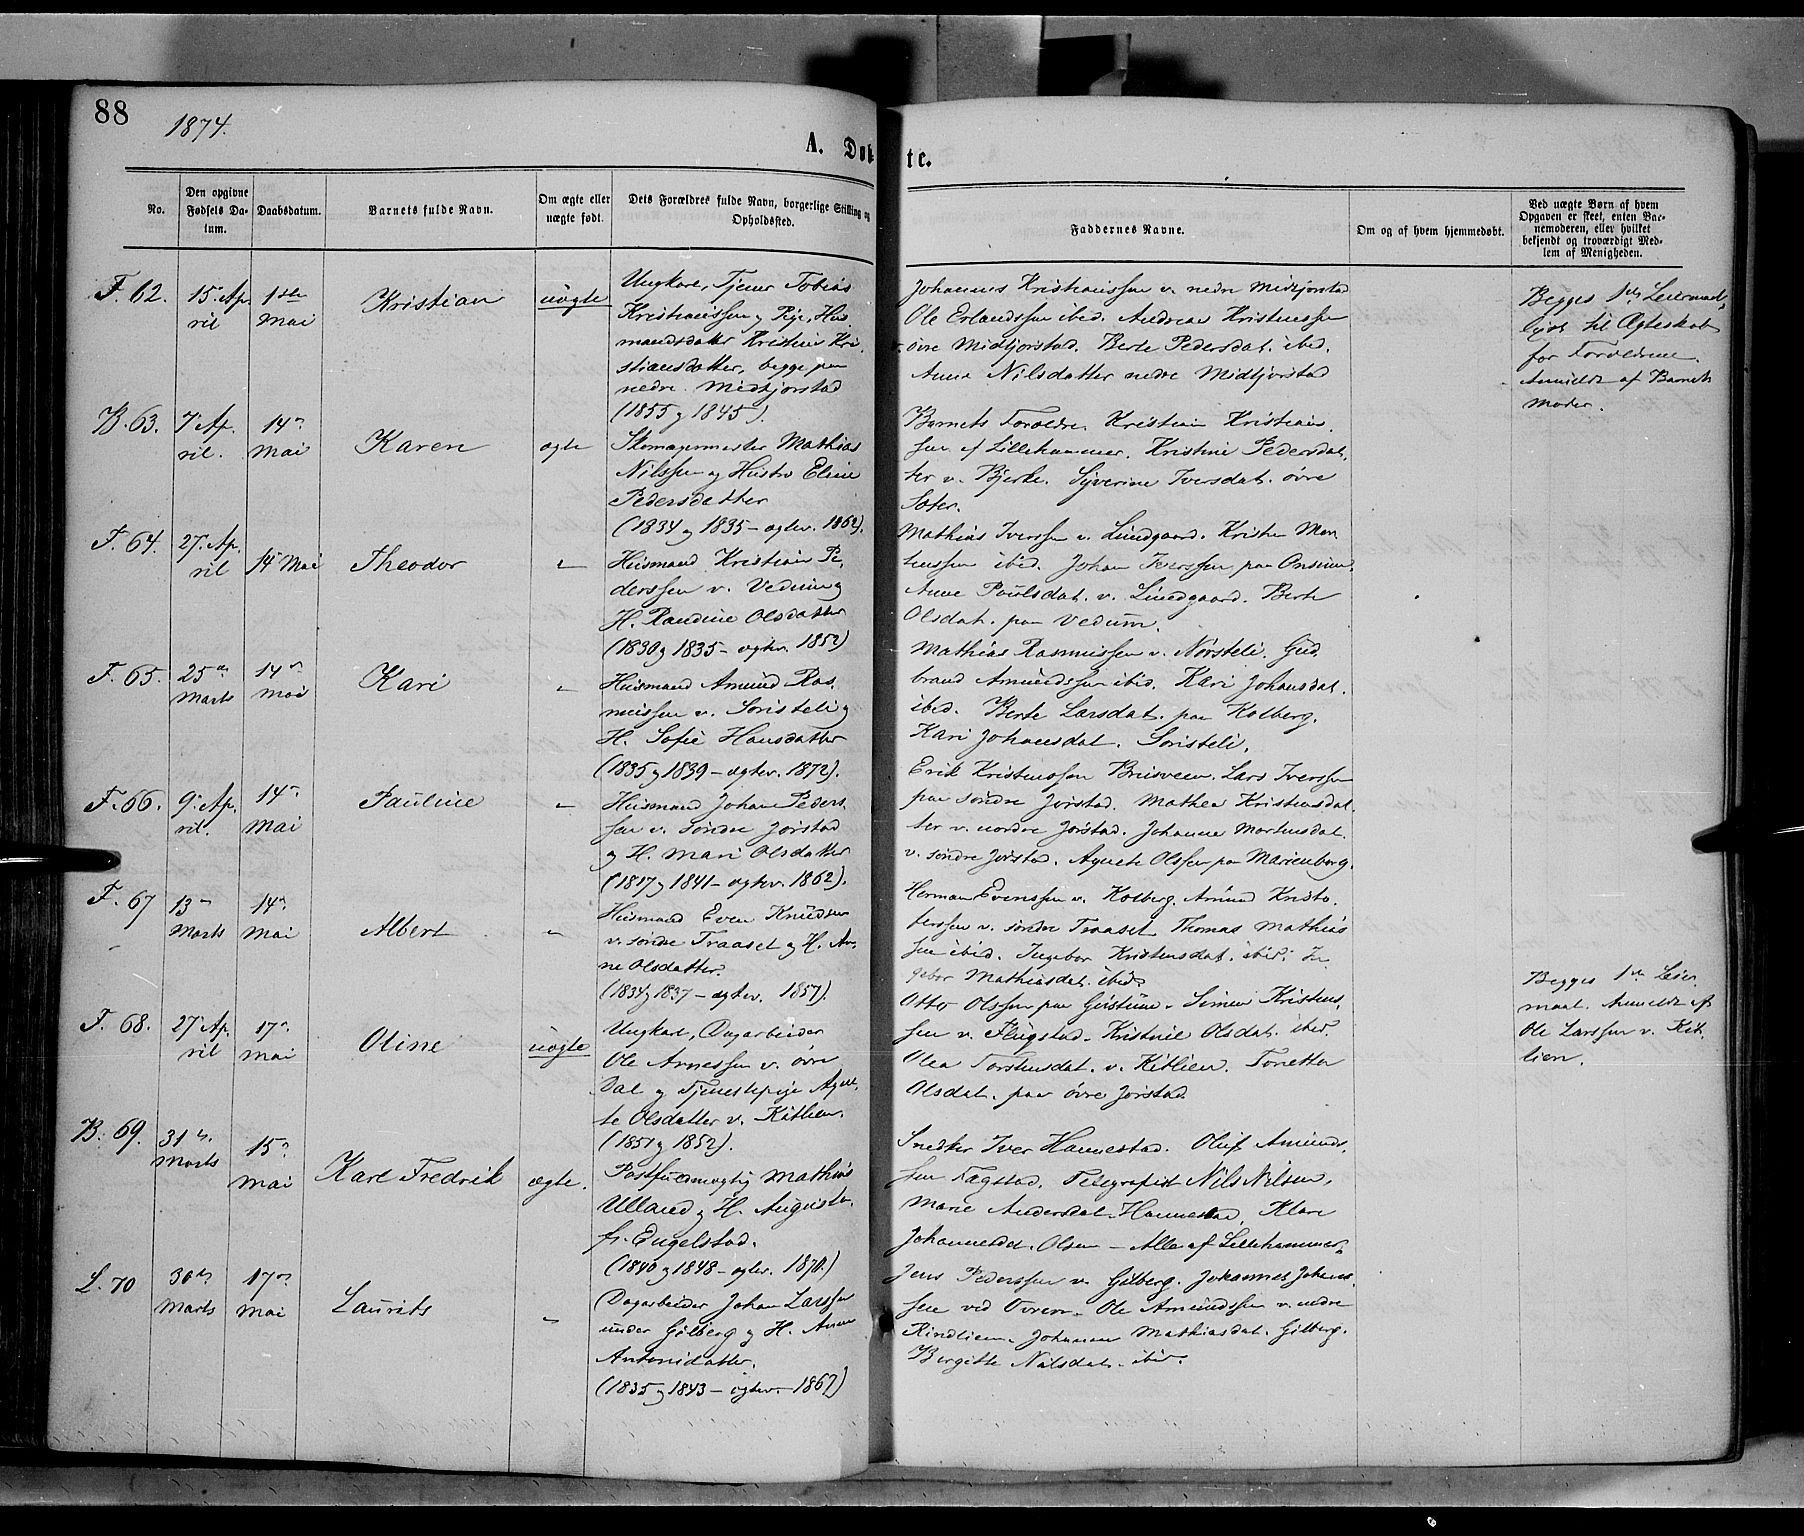 88
1874.
A. Døbte.
No.
Den opgivne Fødsels Datum.
Daabsdatum.
Barnets fulde Navn.
Om ægte eller uægte født.
Dets Forældres fulde Navn, borgerlige Stilling og Opholdssted.
Faddernes Navne.
Om og af hvem hjemmedøbt.
Ved uægte Børn af hvem Opgaven er skeet, enten Barnemoderen, eller hvilket bekjendt og troværdigt Medlem af Menigheden.
F. 62.
15. April
1ste Mai
Kristian
uægte
Ungkarl, Tjener Tobias
Kristianssen og Pige, Hus
mandsdatter Kristine Kri
stiansdatter, begge paa
nedre Midtjorstad
(1855 og 1845).
Johannes Kristianssen v. nedre Midtjorstad
Ole Erlandssen ibid. Andreas Kristenssen
øvre Midtjorstad. Berte Pedersdat. ibid.
Anne Nilsdatter nedre Midtjorstad
Begges 1ste Leiermaal,
lyst til Ægteskab
for Forældrene.
Anmeldt af Barnets
Moder.
B. 63.
7. April.
14de Mai
Karen
ægte
Skomagermester Mathias
Nilssen og Hustro Eline
Pedersdatter
(1834 og 1835 - ægtev. 1862).
Barnets Forældre. Kristian Kristians
sen af Lillehammer. Kristine Pedersdat
ter v. Bjerke. Syverine Iversdat. øvre
Sater.
F. 64.
27. April
14 Mai
Theodor
"
Huusmand Kristian Pe
derssen v. Vedum og
H. Randine Olsdatter
(1830 og 1835 - ægtev. 1852)
Mathias Iverssen v. Lundgaard. Kristen Mor
tenssen ibid. Johan Iverssen paa Onsum.
Anne Poulsdat. v. Lundgaard. Berte
Olsdat. paa Vedum.
F. 65.
25de Marts
14de Mai
Kari
"
Huusmand Amund Ras
mussen v. Sørsteli og
H. Sofie Hansdatter
(1835 og 1839 - ægtev. 1872).
Mathias Rasmussen v. Norsteli. Gud
brand Amundssen ibid. Kari Johansdat.
ibid. Berte Larsdat. paa Kolberg.
Kari Johansdat. Sørsteli.
F. 66.
9. April.
14de Mai
Pauline
"
Huusmand Johan Peders
sen v. søndre Jørstad
og H. Mari Olsdatter
(1817 og 1841 - ægtev. 1862).
Erik Kristenssen Bruisveen. Lars Iverssen
paa søndre Jørstad. Mathea Kristensdat
ter v. nordre Jørstad. Johanne Mortensdat.
v. søndre Jørstad. Agnete Olssen paa Marienborg.
F. 67
13de Marts
14de Mai
Albert
"
Huusmand Even Knudsen
v. søndre Traaset og H. An
ne Olsdatter.
(1834 og 1837 - ægtev. 1857).
Herman Evenssen v. Kolberg. Amund Kristo
ferssen v. søndre Traaset. Thomas Mathias
sen ibid. Ingebor Kristensdat. ibid. In
gebor Mathiasdat. ibid.
F. 68.
27. April
17de Mai
Oline
uægte
Ungkarl, Dagarbeider
Ole Arnessen v. øvre
Dal og Tjenestepige Agne
te Olsdatter v. Kitlien.
(1851 og 1852).
Otto Olssen paa Gustum. Simen Kristens
sen v. Flugstad. Kristine Olsdat. ibid.
Olea Torstensdat. v. Kitlien. Tonetta
Olsdat. paa øvre Jørstad.
Begges 1ste Leier
maal. Anmeldt af
Ole Larssen v. Kit
lien.
B. 69.
31te Marts
15de Mai
Karl Fredrik
ægte.
Postfuldmægtig Mathias
Ulland og H. Augusta
f. Engelstad.
(1840 og 1848 - ægtev. 1870.)
Snedker Iver Hannestad. Oluf Amunds
sen Fagstad. Telegrafist Nils Nilsen.
Marie Andersdat. Hannestad. Klara
Johannesdat. Olsen - Alle af Lillehammer.
L. 70
30te Marts
17de Mai
Laurits
"
Dagarbeider Johan Larssen
under Gilberg og H. Anne
Antonidatter.
(1835 og 1843 - ægtev. 1867)
Jens Pederssen v. Gilberg. Johannes Johans
sen ved Vvren. Ole Amundssen v. nedre
Rindlien. Johanne Mathiasdat. Gilberg.
Bergitte Nilsdat. ibid.